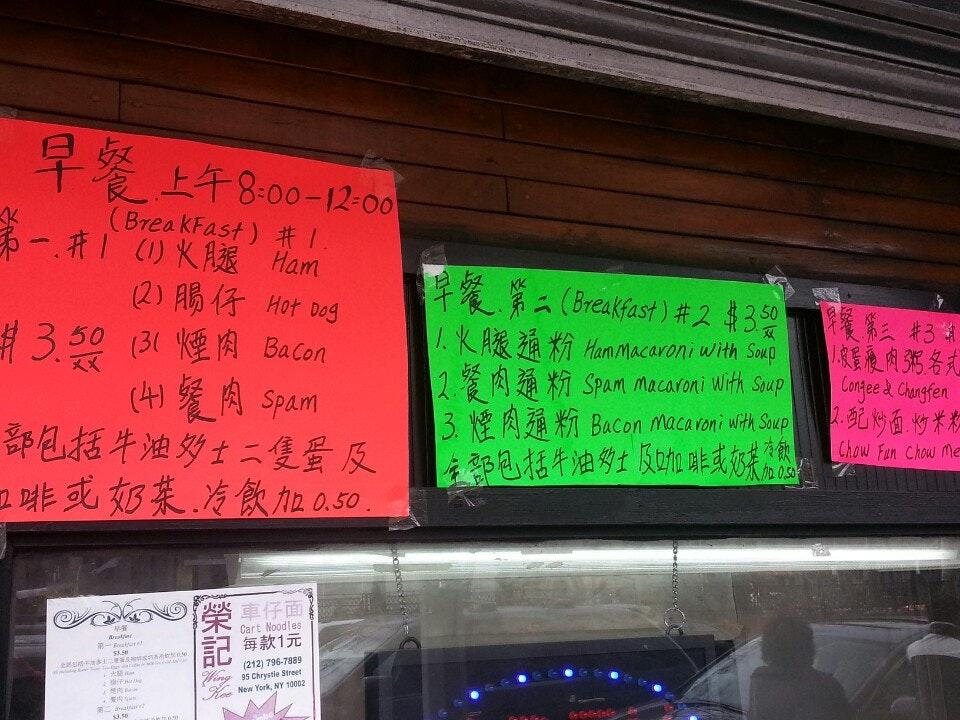 早餐.上午8:00-12:00
(BreakFast) #1.
第一.#1 (1) 火腿 Ham
(2) 腸仔 Hot Dog
$3.50 (3( 煙肉 Bacon
(4) 餐肉 Spam
部包括牛油多士二隻蛋及
啡或奶茶.冷飲加0.50.
早餐.第二(Breakfast)#2 $3.50
1.火腿通粉 HamMacaroni with Soup
2.餐肉通粉 Spam macaroni with Soup
3.煙肉通粉 Bacon macaroni with Soup
全部包括牛油多士及咖啡或奶茶冷飲加0.50
早餐.第三 #3
1.皮蛋瘦肉粥.各式
Congee & Changfen
2.配炒面.炒米粉
Chow Fun Chow Me
早餐
Breakfast
第一 Breakfast #1
$3.50
1. 火腿 Ham
2. 腸仔 Hot Dog
3. 煙肉 Bacon
4. 餐肉 Spam
第二 Breakfast #2
$3.50
榮記
Wing Kee
車仔面
Cart Noodles
每款1元
(212) 796-7889
95 Chrystie Street
New York, NY 10002